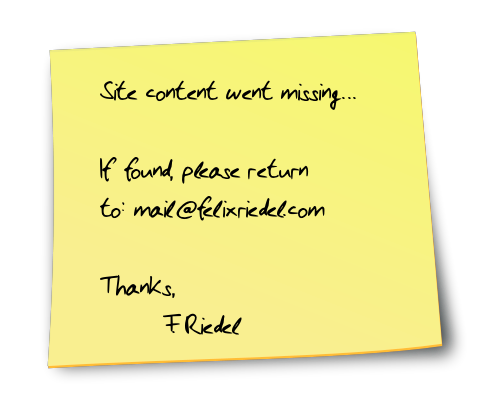 Site content went missing...
If found, please return
to: mail@felixriedel.com
Thanks,
F Riedel